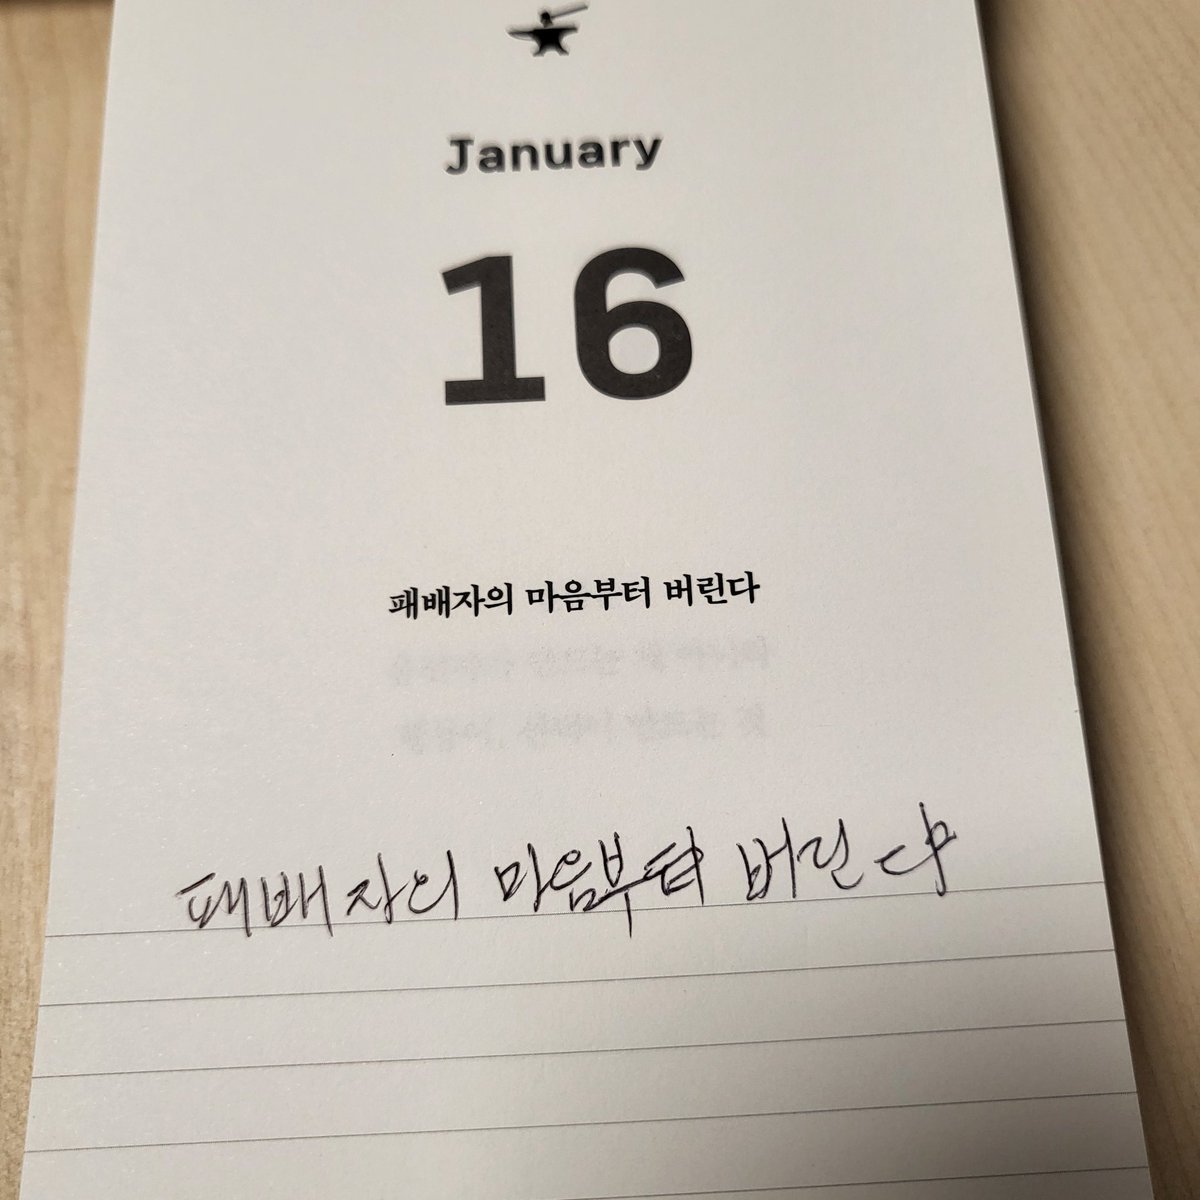 January
16
패배자의 마음부터 버린다
패배자의 마음부터 버린다